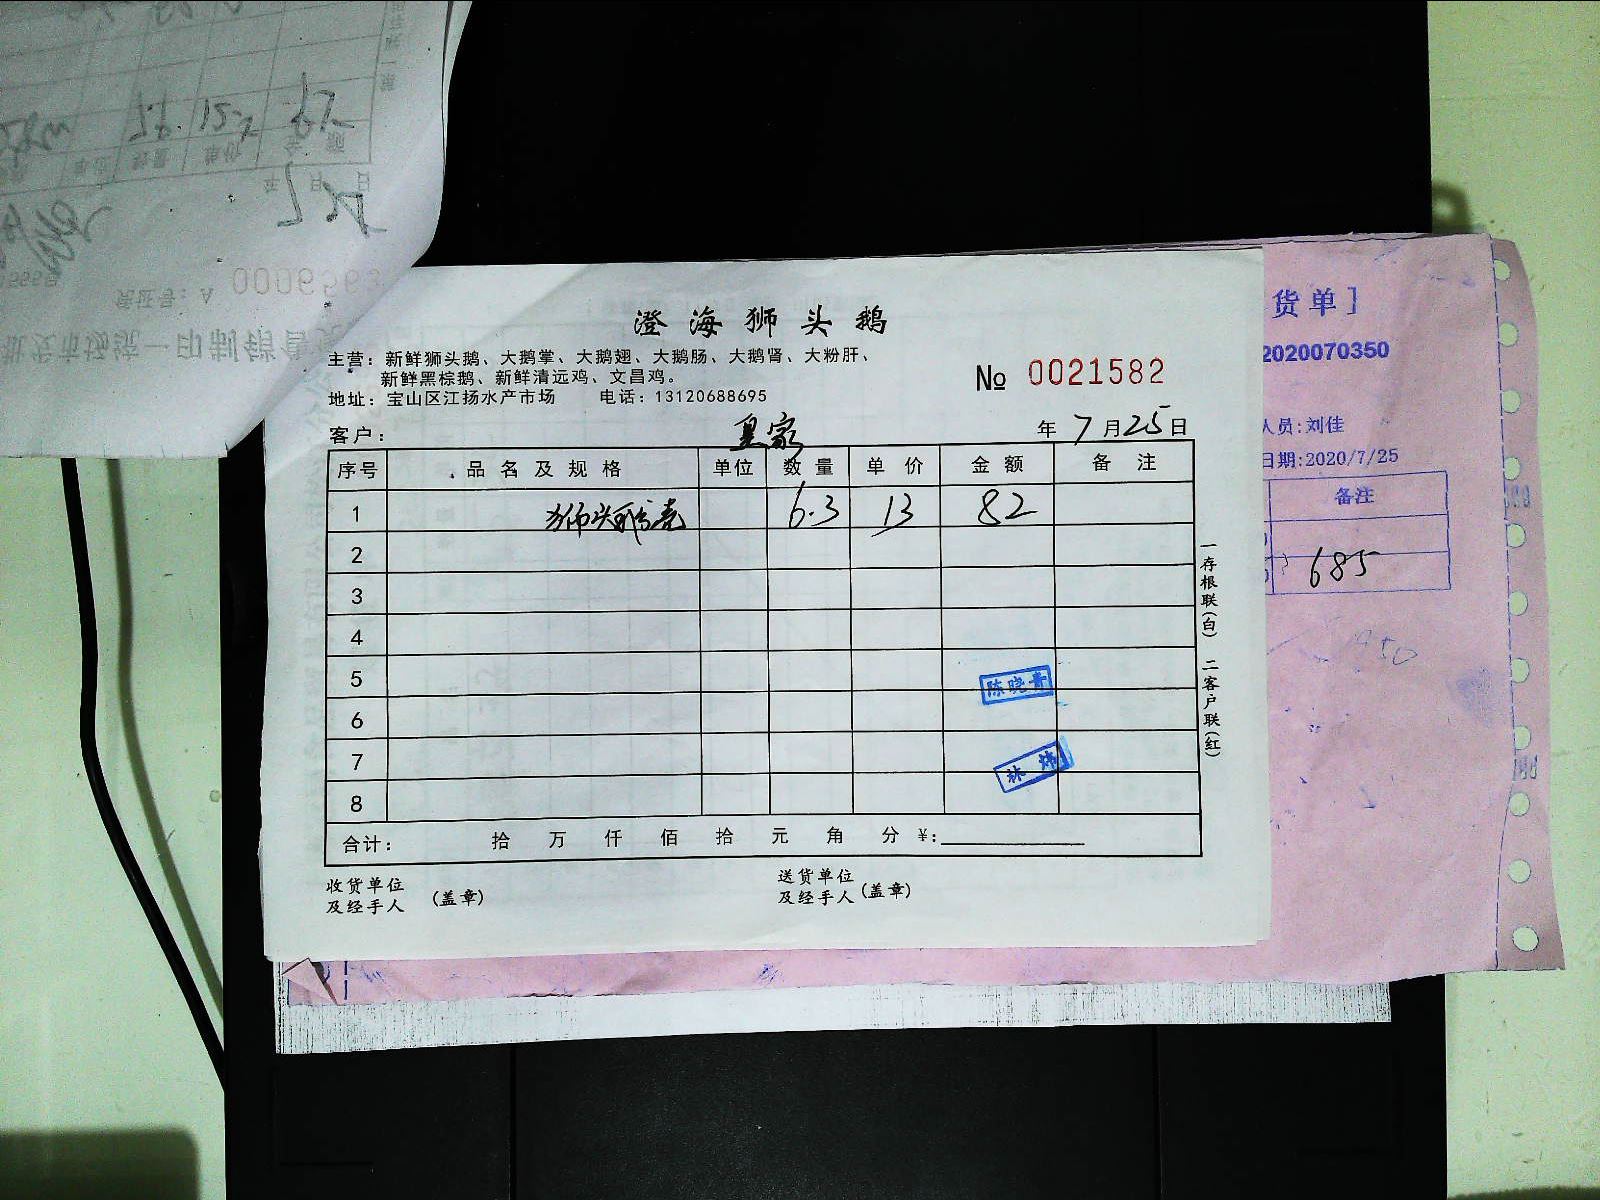 澄海狮头鹅
主营：新鲜狮头鹅、大鹅掌、大鹅翅、大鹅肠、大鹅肾、大粉肝、
新鲜黑棕鹅、新鲜清远鸡、文昌鸡。
地址：宝山区江扬水产市场 电话：13120688695
№ 0021582
客户： 皇家 年 7 月 25 日
序号 品名及规格 单位 数量 单价 金额 备注
1 狮头鹅壳 6.3 13 82
2
3
4
5 陈晓青
6
7 林炜
8
合计： 拾 万 仟 佰 拾 元 角 分 ¥：
收货单位
及经手人 (盖章)
送货单位
及经手人 (盖章)
一存根联(白) 二客户联(红)
货单]
2020070350
人员:刘佳
日期:2020/7/25
备注
685
1950
凭证号：A 0006563
批发市场统一印制销售
年 月 日
单位 数量 单价 金额